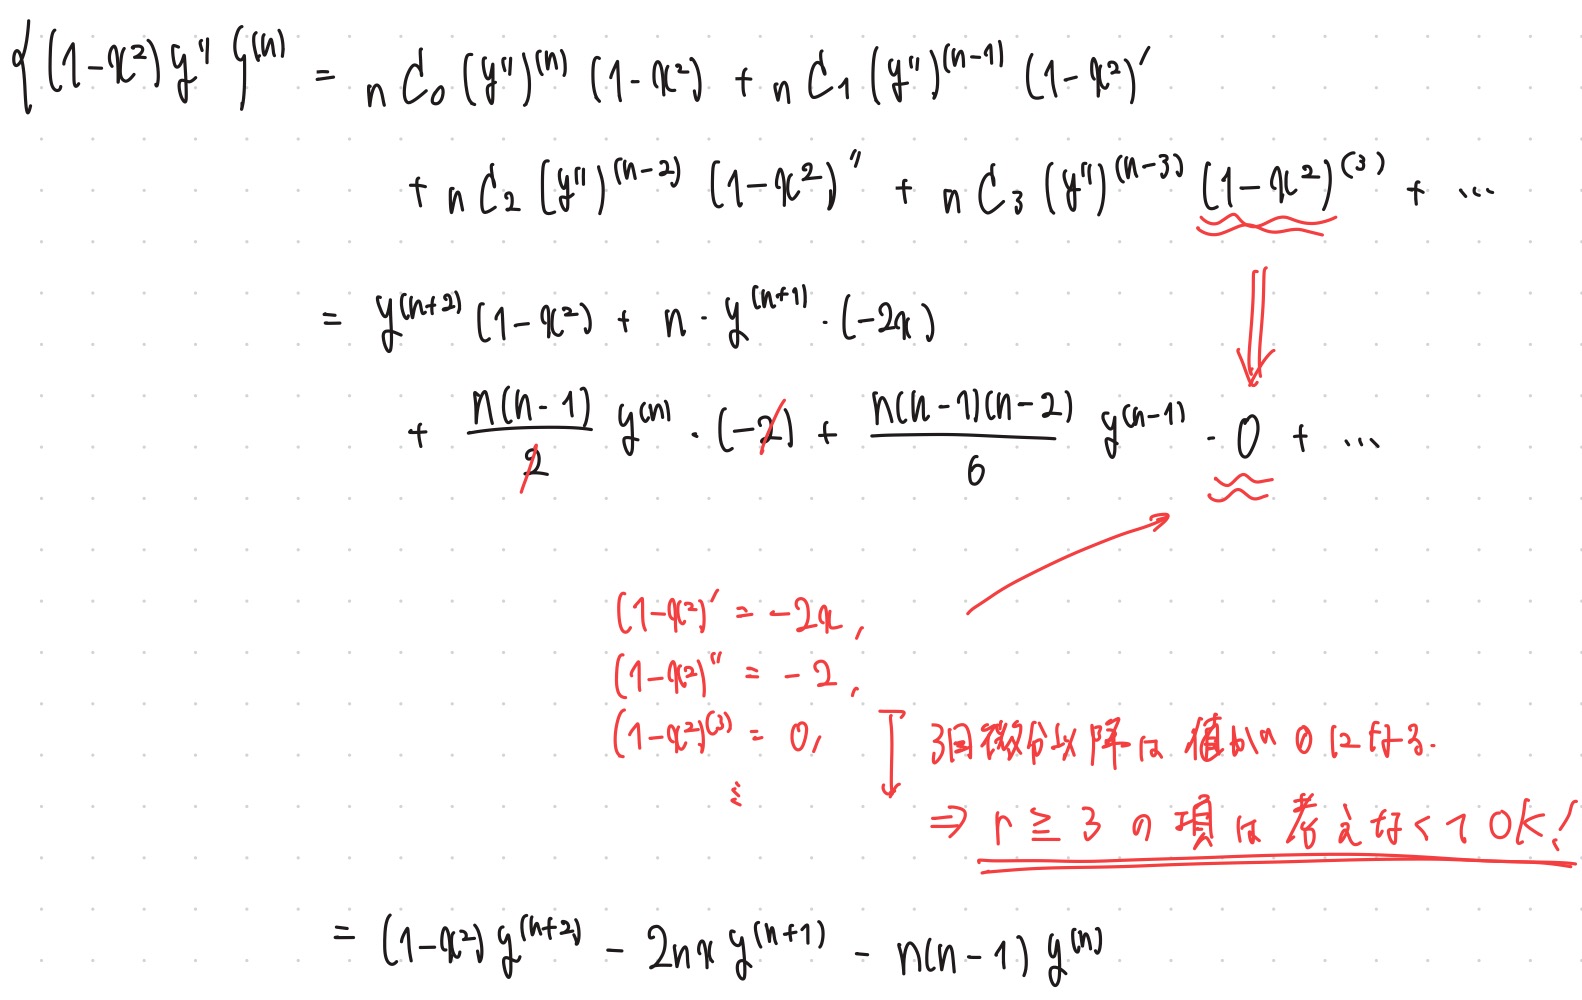 {(1-x²)y''}⁽ⁿ⁾ = nC₀(y'')⁽ⁿ⁾(1-x²) + nC₁(y'')⁽ⁿ⁻¹⁾(1-x²)'
+ nC₂(y'')⁽ⁿ⁻²⁾(1-x²)'' + nC₃(y'')⁽ⁿ⁻³⁾(1-x²)⁽³⁾ + …
= y⁽ⁿ⁺²⁾(1-x²) + n・y⁽ⁿ⁺¹⁾・(-2x)
+ n(n-1)/2 y⁽ⁿ⁾・(-2) + n(n-1)(n-2)/6 y⁽ⁿ⁻¹⁾・0 + …
(1-x²)' = -2x,
(1-x²)'' = -2,
(1-x²)⁽³⁾ = 0,
⋮
3回微分以降は値が0になる.
⇒ r ≧ 3 の項は考えなくてOK!
= (1-x²)y⁽ⁿ⁺²⁾ - 2nxy⁽ⁿ⁺¹⁾ - n(n-1)y⁽ⁿ⁾